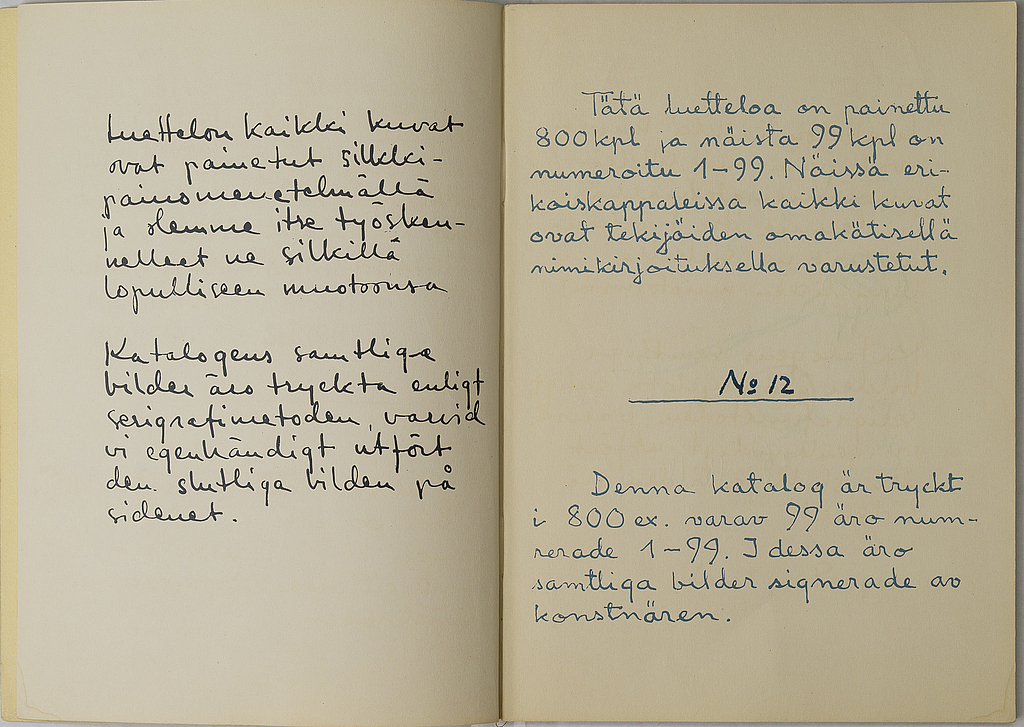 Luettelon kaikki kuvat
ovat painetut silkki-
painomenetelmällä
ja olemme itse työsken-
nelleet ne silkillä
lopulliseen muotoonsa
Katalogens samtliga
bilder äro tryckta enligt
serigrafimetoden, varvid
vi egenhändigt utfört
den slutliga bilden på
sidenet.
Tätä luetteloa on painettu
800 kpl ja näista 99 kpl on
numeroitu 1-99. Näissä eri-
koiskappaleissa kaikki kuvat
ovat tekijöiden omakätisellä
nimikirjoituksella varustetut.
No 12
Denna katalog är tryckt
i 800 ex. varav 99 äro num-
rerade 1-99. I dessa äro
samtliga bilder signerade av
konstnären.